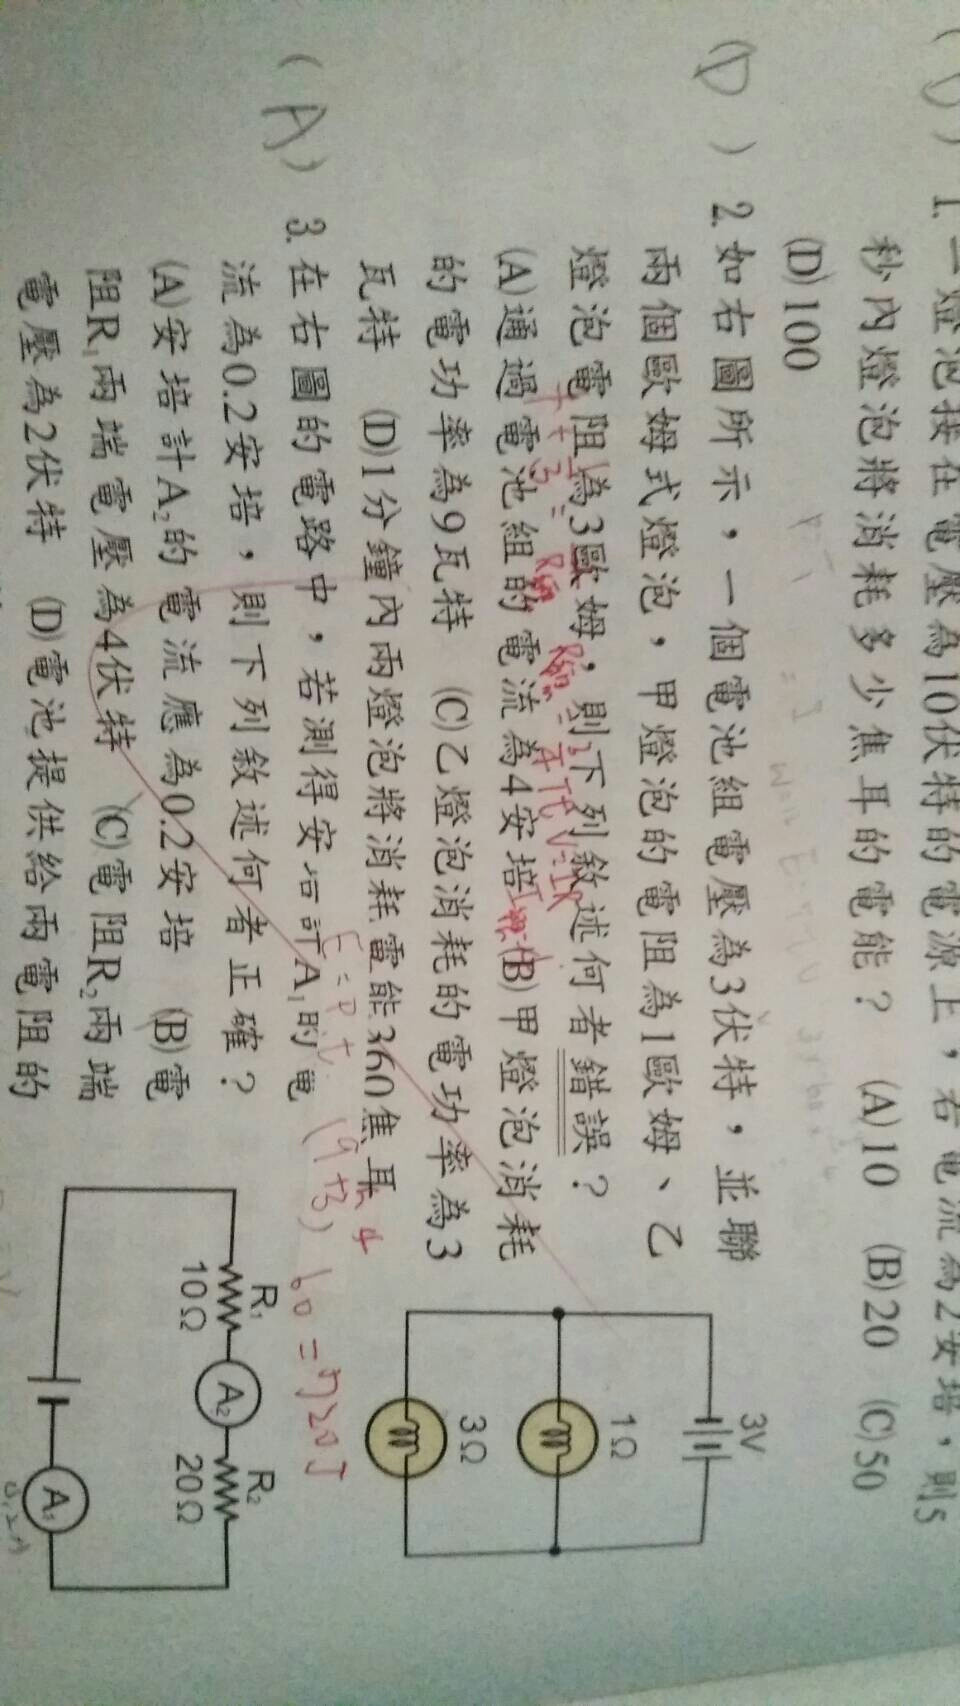 (D) 1. 一燈泡接在電壓為10伏特的電源上，若電流為2安培，則5
秒內燈泡將消耗多少焦耳的電能？ (A)10 (B)20 (C)50
(D)100
(D) 2. 如右圖所示，一個電池組電壓為3伏特，並聯
兩個歐姆式燈泡，甲燈泡的電阻為1歐姆、乙
燈泡電阻為3歐姆，則下列敘述何者錯誤？
(A)通過電池組的電流為4安培 (B)甲燈泡消耗
的電功率為9瓦特 (C)乙燈泡消耗的電功率為3
瓦特 (D)1分鐘內兩燈泡將消耗電能360焦耳
E=Pt (9+3) 60=720J
3V
1Ω
3Ω
(A) 3. 在右圖的電路中，若測得安培計A₁的電
流為0.2安培，則下列敘述何者正確？
(A)安培計A₂的電流應為0.2安培 (B)電
阻R₁兩端電壓為4伏特 (C)電阻R₂兩端
電壓為2伏特 (D)電池提供給兩電阻的
R₁ R₂
10Ω A₂ 20Ω
A₁
0.2A